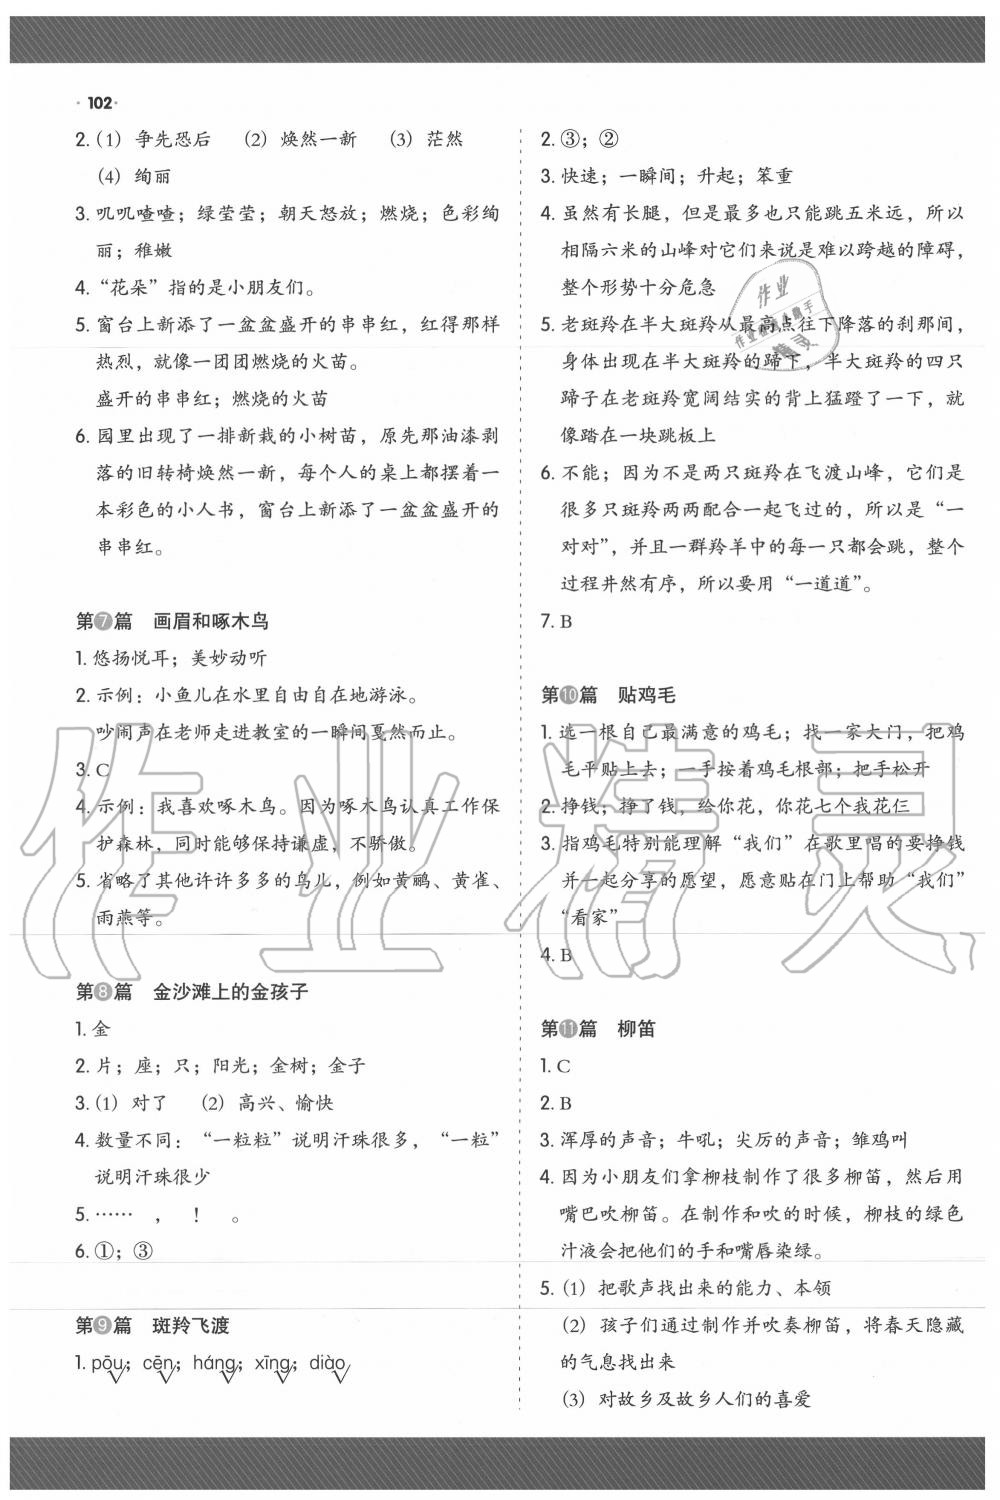 ·102·
2. (1) 争先恐后 (2) 焕然一新 (3) 茫然
(4) 绚丽
3. 叽叽喳喳；绿莹莹；朝天怒放；燃烧；色彩绚
丽；稚嫩
4. “花朵”指的是小朋友们。
5. 窗台上新添了一盆盆盛开的串串红，红得那样
热烈，就像一团团燃烧的火苗。
盛开的串串红；燃烧的火苗
6. 园里出现了一排新栽的小树苗，原先那油漆剥
落的旧转椅焕然一新，每个人的桌上都摆着一
本彩色的小人书，窗台上新添了一盆盆盛开的
串串红。
第7篇 画眉和啄木鸟
1. 悠扬悦耳；美妙动听
2. 示例：小鱼儿在水里自由自在地游泳。
吵闹声在老师走进教室的一瞬间戛然而止。
3. C
4. 示例：我喜欢啄木鸟。因为啄木鸟认真工作保
护森林，同时能够保持谦虚，不骄傲。
5. 省略了其他许许多多的鸟儿，例如黄鹂、黄雀、
雨燕等。
第8篇 金沙滩上的金孩子
1. 金
2. 片；座；只；阳光；金树；金子
3. (1) 对了 (2) 高兴、愉快
4. 数量不同：“一粒粒”说明汗珠很多，“一粒”
说明汗珠很少
5. …… ， ！ 。
6. ①；③
第9篇 斑羚飞渡
1. pōu；cēn；háng；xīng；diào
2. ③；②
3. 快速；一瞬间；升起；笨重
4. 虽然有长腿，但是最多也只能跳五米远，所以
相隔六米的山峰对它们来说是难以跨越的障碍，
整个形势十分危急
5. 老斑羚在半大斑羚从最高点往下降落的刹那间，
身体出现在半大斑羚的蹄下，半大斑羚的四只
蹄子在老斑羚宽阔结实的背上猛蹬了一下，就
像踏在一块跳板上
6. 不能；因为不是两只斑羚在飞渡山峰，它们是
很多只斑羚两两配合一起飞过的，所以是“一
对对”，并且一群羚羊中的每一只都会跳，整个
过程井然有序，所以要用“一道道”。
7. B
第10篇 贴鸡毛
1. 选一根自己最满意的鸡毛；找一家大门，把鸡
毛平贴上去；一手按着鸡毛根部；把手松开
2. 挣钱；挣了钱，给你花，你花七个我花仨
3. 指鸡毛特别能理解“我们”在歌里唱的要挣钱
并一起分享的愿望，愿意贴在门上帮助“我们”
“看家”
4. B
第11篇 柳笛
1. C
2. B
3. 浑厚的声音；牛吼；尖厉的声音；雏鸡叫
4. 因为小朋友们拿柳枝制作了很多柳笛，然后用
嘴巴吹柳笛。在制作和吹的时候，柳枝的绿色
汁液会把他们的手和嘴唇染绿。
5. (1) 把歌声找出来的能力、本领
(2) 孩子们通过制作并吹奏柳笛，将春天隐藏
的气息找出来
(3) 对故乡及故乡人们的喜爱
作业精灵